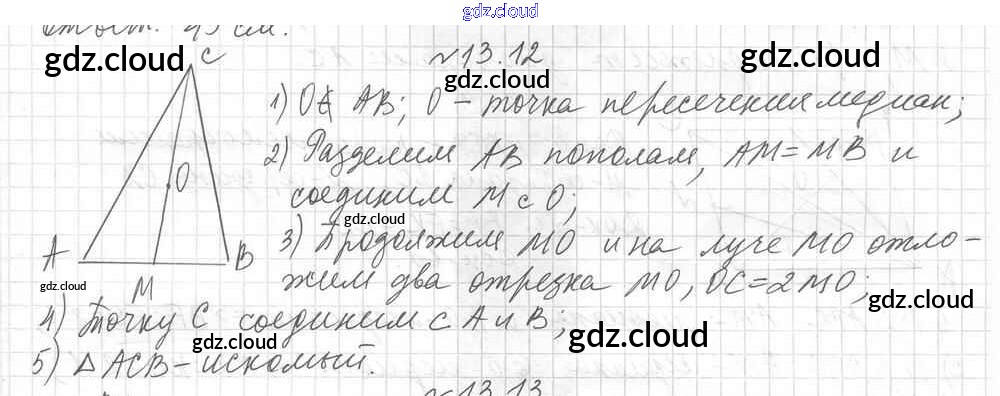 gdz.cloud
Ответ: 45 см.
gdz.cloud
№13.12
gdz.cloud
gdz.cloud
C
1) O∉ AB; O - точка пересечения медиан;
2) Разделим AB пополам, AM = MB и
O
соединим M с O;
gdz.cloud
3) Продолжим MO и на луче MO отло-
A
B
жим два отрезка MO, OC=2MO;
gdz.cloud
M
gdz.cloud
4) Точку C соединим с A и B;
gdz.cloud
5) △ACB - искомый.
gdz.cloud
№13.13